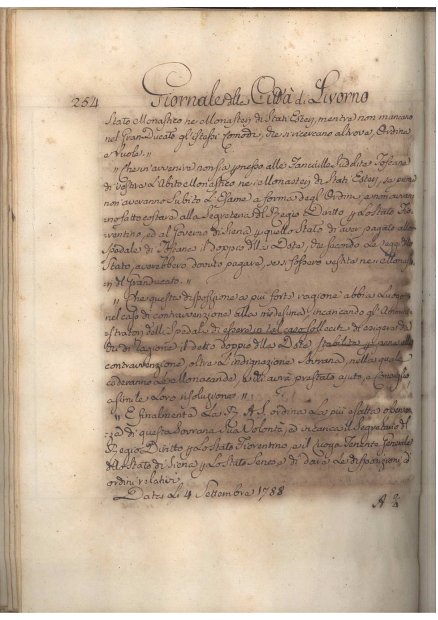 254 Giornale della Città di Livorno
Stato Monastico ne Monasteri di Stati Esteri, mentre non mancano
nel Gran-Ducato gli stessi comodi, che si ricercano altrove, Ordina
e Vuole.,,
,, Che in avvenire non sia permesso alle Fanciulle Suddite Toscane
di Vestire L'Abito Monastico ne Monasteri di Stati Esteri, se prima
non averanno Subito L'Esame a forma degl'Ordini, e non avran-
no fatto costare alla Segreteria del Regio Diritto p lo Stato Fio-
rentino, ed al Governo di Siena p quello Stato di aver pagato allo
Spedale di il doppio della Dote, che secondo le Leggi dello
Stato, averebbero dovuto pagare, se si fossero vestite ne Monaste-
ri del Granducato.,,
,, Che questa disposizione a più forte ragione abbia Luogo
nel caso di contravvenzione alla medesima, incaricando gl'Ammini-
stratori dello Spedale di essere in tal caso solleciti di
di ragione il detto doppio della Dote stabilita p
contravvenzione, oltre L'indignazione Sovrana, nella quale
caderanno Le Monacande, e chi avrà prestato ajuto, e Consiglio
a simile Loro risoluzione.,,
,, E finalmente La R. A. S. ordina La più esatta obbedien-
za di questa Sovrana Sua Volontà, ed incarica il Segretario del
Regio Diritto p lo Stato Fiorentino, e il Luogo Tenente Generale
dello Stato di Siena p lo Stato Senese di dare Le disposizioni, e
ordini relativi.
Dat. Li 4 Settembre 1788